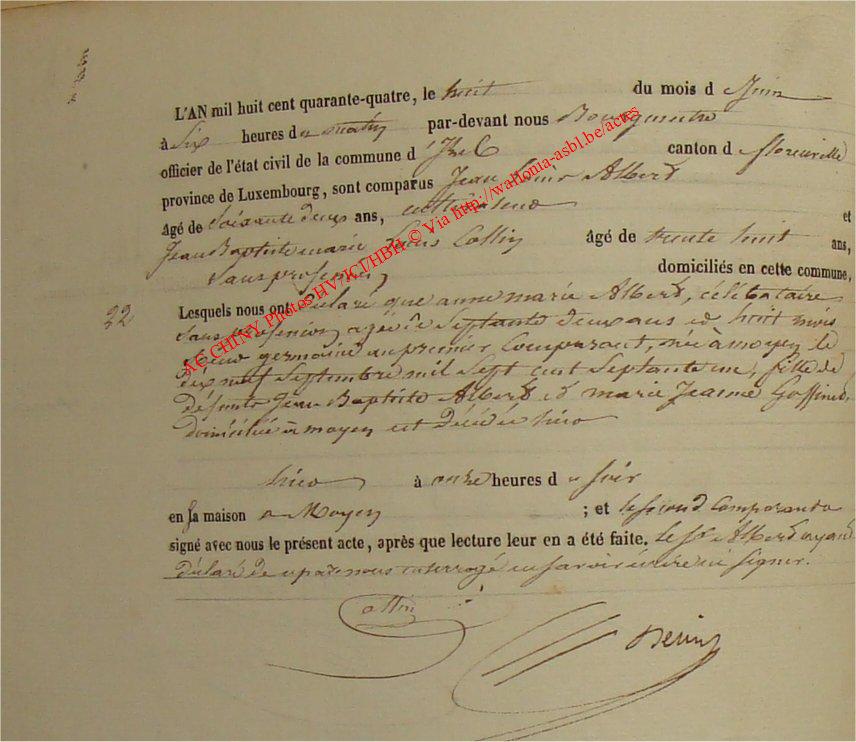 L'AN mil huit cent quarante-quatre, le huit du mois d Juin
à Six heures d u matin par-devant nous Bourguemtre
officier de l'état civil de la commune d 'Izel canton d e florenville
province de Luxembourg, sont comparus Jean Louis Albert
Agé de Soixante deux ans, cultivateur et
Jean Baptiste marie Louis Collin âgé de trente huit ans,
Sans profession, domiciliés en cette commune,
22
Lesquels nous ont déclaré que anne marie Albert, célibataire
Sans profession, agée de Septante deux ans et huit mois
Soeur germaine au premier Comparant, née à moyen le
dix neuf Septembre mil Sept cent Septante un, fille de
défunts Jean Baptiste Albert et marie Jeanne Goffinet,
domiciliée à moyen est Décédée hier
hier à onze heures d u Soir
en sa maison a Moyen ; et le second Comparant a
signé avec nous le présent acte, après que lecture leur en a été faite. Le Sr Albert ayant
déclaré de ce par nous interrogé ne savoir écrire ni Signer.
Collin
AEC HINY Photos HV/ICI/HBH © Via http://wallonia-asbl.be/actes